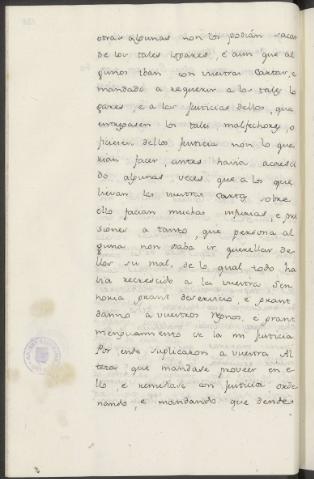 otras algunas non los podian sacar
de los tales logares, e aun que al
gunos iban con vuestras cartas, e
mandado a requerir a los tales lo
gares, e a las Justicias dellos, que
entregasen los tales malfechores, o
ficiesen dellos Justicia non lo que
rian facer, antes havia acaesci
do algunas veces que a los que
llevan las vuestras cartas sobre
ello facian muchas injurias, e pri
siones a tanto, que persona al
guna non osaba ir querellar de
llos su mal, de lo qual todo ha
bia recrescido a la vuestra Sen
noria grant deservicio, e grant
danno a vuestros Regnos, e grant
menguamiento de la mi Justicia
Por ende suplicaron a vuestra Al
teza que mandase proveer en e
llo e remediase con Justicia orde
nando, e mandando que dende